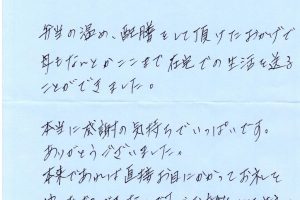 弁当の温め、配膳をして頂けたおかげで
母もなんとかここまで在宅での生活を送る
ことができました。
本当に感謝の気持ちでいっぱいです。
ありがとうございました。
本来であれば直接お目にかかってお礼を